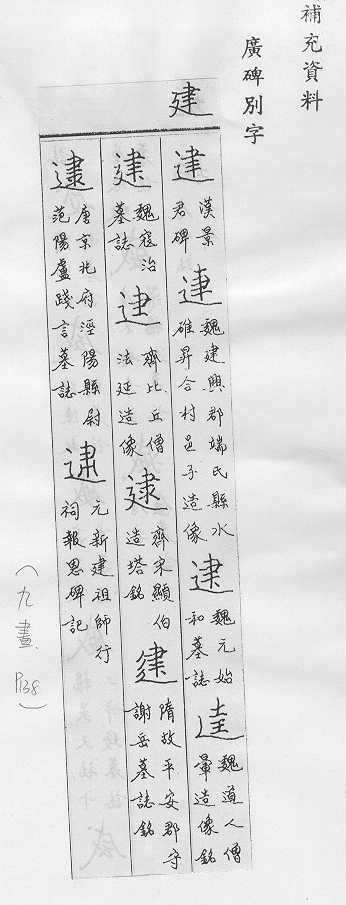 補充資料
廣碑別字
建
建
漢景
君碑
建
魏建興郡端氏縣水
碓昇合村邑子造像
建
魏元始
和墓誌
建
魏道人僧
暈造像銘
建
魏寇治
墓誌
建
齊比丘僧
法延造像
建
齊宋顯伯
造塔銘
建
隋故平安郡守
謝岳墓誌銘
建
唐京兆府涇陽縣尉
范陽盧踐言墓誌
建
元新建祖師行
祠報恩碑記
(九畫 P138)